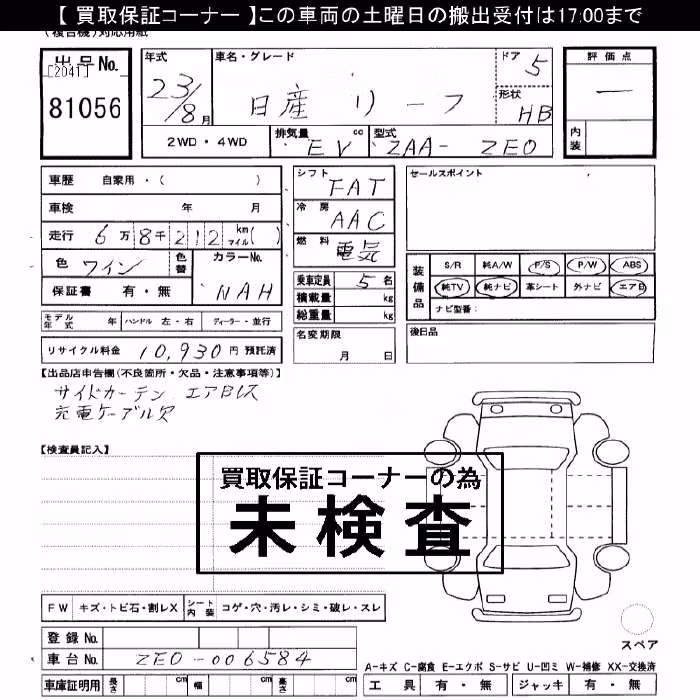 【 買取保証コーナー 】この車両の土曜日の搬出受付は17:00まで
(複合機)対応用紙
出品No.
[2041]
81056
年式
23/8月
車名・グレード
日産 リーフ
ドア 5
形状 HB
評価点
—
内装
2WD・4WD
排気量 cc EV
型式 ZAA- ZE0
車歴 自家用・( )
車検 年 月
走行 6万8千212 km マイル( )
色 ワイン 色替 カラーNo. NAH
保証書 有・無
シフト FAT
冷房 AAC
燃料 電気
乗車定員 5 名
積載量 kg
総重量 kg
名変期限
月 日
セールスポイント
装備品
S/R 純A/W P/S P/W ABS
純TV 純ナビ 革シート 外ナビ エアB
ナビ型番:
後日品
モデル年式 年 ハンドル 左・右 ディーラー・並行
リサイクル料金 10,930 円 預託済
【出品店申告欄(不良箇所・欠品・注意事項等)】
サイドカーテン エアBレス
充電ケーブル欠
【検査員記入】
買取保証コーナーの為
未検査
FW キズ・トビ石・割レX シート内装 コゲ・穴・汚レ・シミ・破レ・スレ
登録No.
車台No. ZE0-006584
車庫証明用 長さ cm 幅 cm 高さ cm
スペア
A-キズ C-腐食 E-エクボ S-サビ U-凹ミ W-補修 XX-交換済
工具 有・無 ジャッキ 有・無